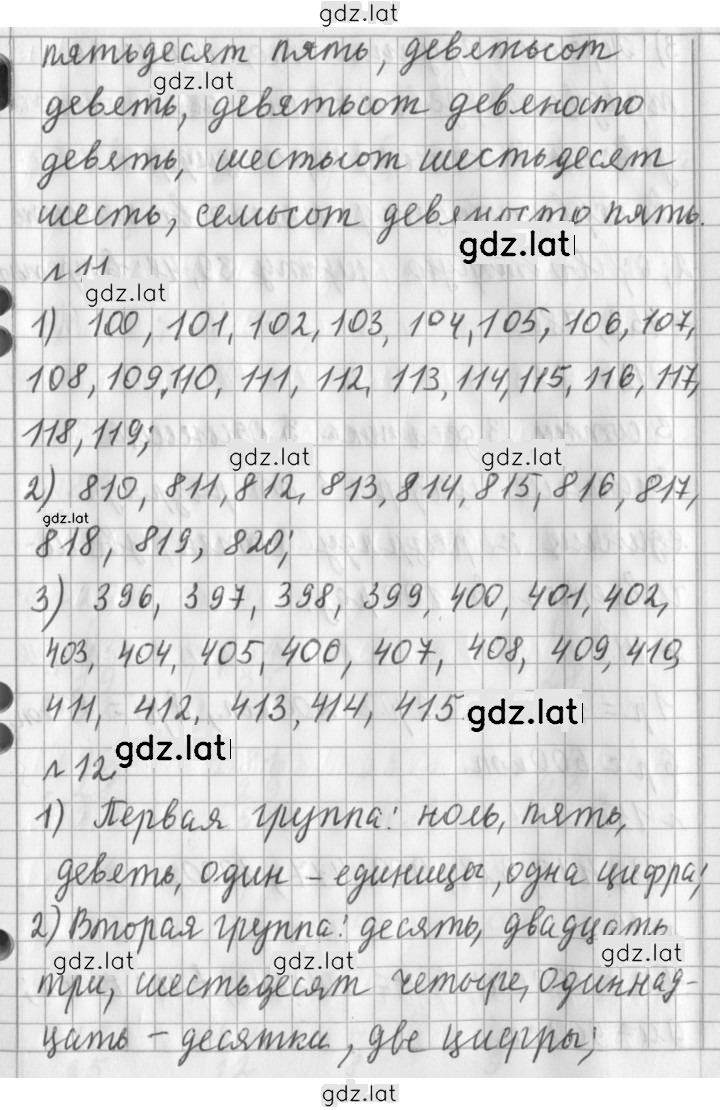 gdz.lat
пятьдесят пять, девятьсот
gdz.lat
девять, девятьсот девяносто
девять, шестьсот шестьдесят
шесть, семьсот девяносто пять.
gdz.lat
№11
gdz.lat
1) 100, 101, 102, 103, 104, 105, 106, 107,
108, 109, 110, 111, 112, 113, 114, 115, 116, 117,
118, 119;
gdz.lat gdz.lat
2) 810, 811, 812, 813, 814, 815, 816, 817,
gdz.lat
818, 819, 820;
3) 396, 397, 398, 399, 400, 401, 402,
403, 404, 405, 406, 407, 408, 409, 410,
411, 412, 413, 414, 415
gdz.lat
gdz.lat
№12
1) Первая группа: ноль, пять,
девять, один – единицы, одна цифра;
2) Вторая группа: десять, двадцать
gdz.lat gdz.lat gdz.lat
три, шестьдесят четыре, одиннад-
цать – десятки, две цифры;
gdz.lat